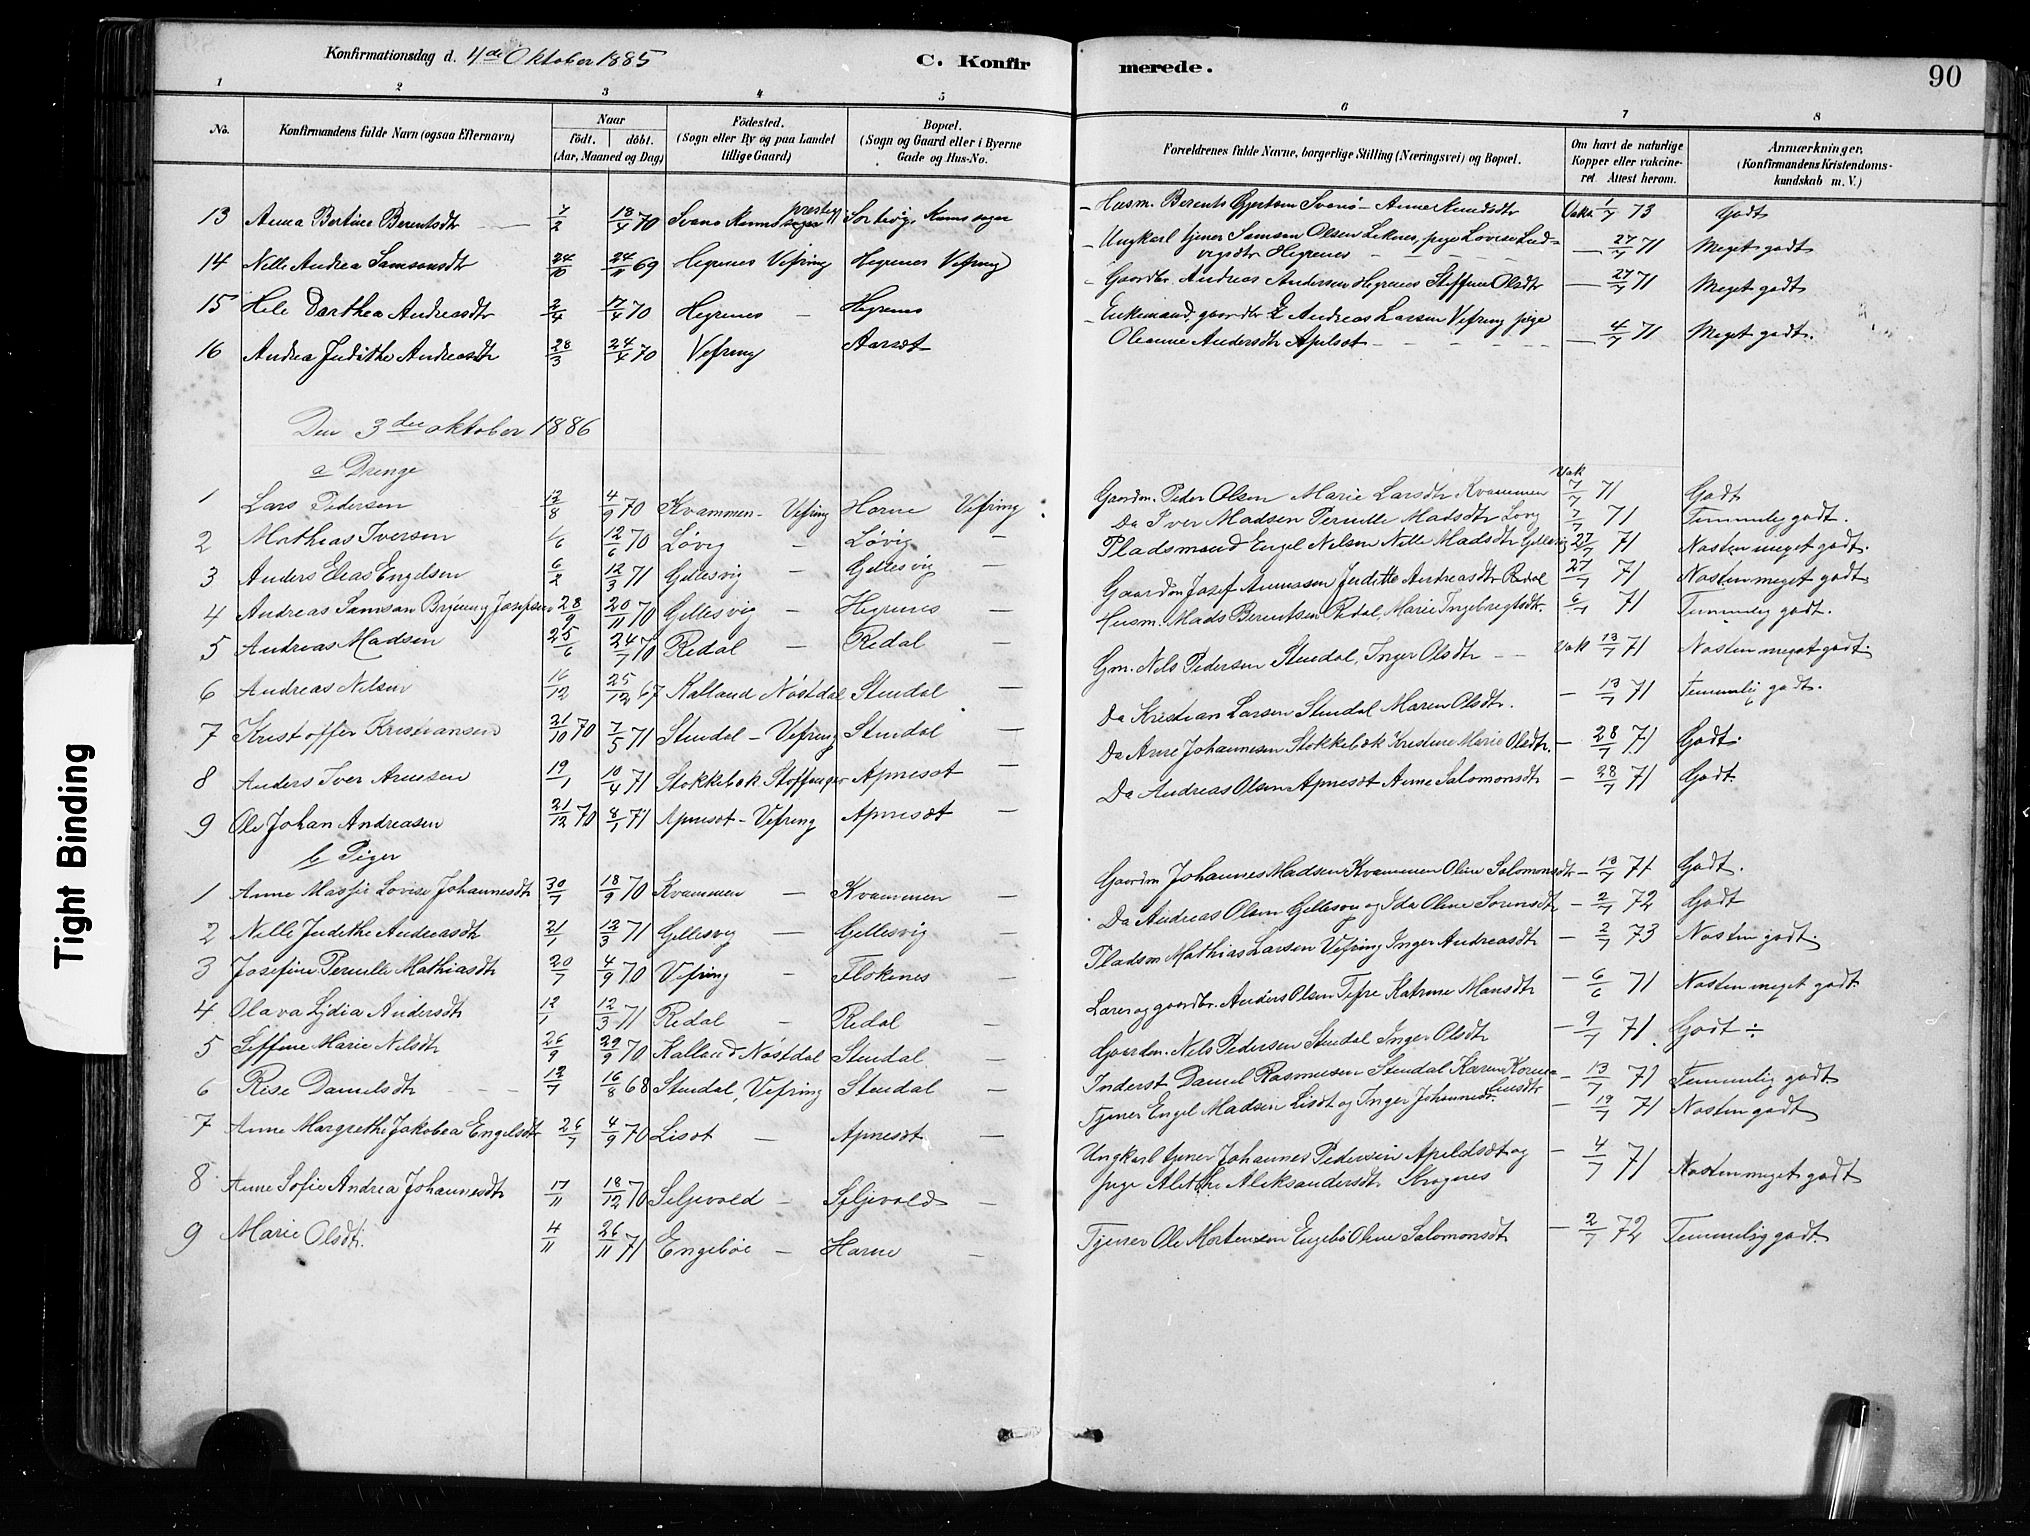 Konfirmationsdag d. 4de Oktober 1885 C. Konfirmerede. 90
1 2 3 4 5 6 7 8
No. Konfirmandens fulde Navn (ogsaa Efternavn) Naar födt. döbt. (Aar, Maaned og Dag) Födested. (Sogn eller By og paa Landet tillige Gaard) Bopæl. (Sogn og Gaard eller i Byerne Gade og Hus-No. Forældrenes fulde Navne, borgerlige Stilling (Næringsvei) og Bopæl. Om havt de naturlige Kopper eller vakcineret. Attest herom. Anmærkninger. (Konfirmandens Kristendomskundskab m. V.)
13 Anna Bertine Berentsdtr 7/2 18/4 70 Svanø Kinns prestegj Kinns sogn - Husm. Berent Gjertsen Svanø - Anne Knudsdtr Vakc. 1/7 73 Godt
14 Nille Andrea Samsonsdtr 24/11 69 Hegrenes Vefring Hegrenes Vefring - Ungkarl tjener Samson Olsen Leknes, pige Lovise Ludvigsdtr Hegrenes - 27/7 71 Meget godt
15 Hele Darthea Andreasdtr 2/4 17/4 70 Hegrenes - Hegrenes - Gaardbr. Andreas Andersen Hegrenes Steffine Olsdtr - 27/7 71 Meget godt
16 Andrea Judithe Andreasdtr 28/3 24/4 70 Vefring Aarset - Enkemand, gaardbr Andreas Larsen Vefring pige Oleanne Andersdtr Apelset - 4/7 71 Meget godt.
Den 3die oktober 1886
a Drenge
1 Lars Pedersen 12/8 4/9 70 Kvammen - Vefring Horne Vefring Gaardm. Peder Olsen Marie Larsdtr Kvammen Vak 7/7 71 Godt
2 Mathias Iversen 12/6 70 Løvig - Løvig - Da Iver Madsen Pernille Madsdtr Løvig 7/7 71 Temmelig godt.
3 Anders Elias Engelsen 6/2 12/3 71 Gellesvig - Gellesvig - Pladsmand Engel Nilsen Nille Madsdtr 27/7 71 Næsten meget godt.
4 Andreas Samson Josefsen 28/9 20/11 70 Gellesvig - Hegrenes - Gaardm Josef Judithe Andreasdtr Redal 27/7 71 Næsten meget godt.
5 Andreas Madsen 25/6 24/7 70 Redal - Redal - Husm. Mads Berentsen Redal, Marie Ingebregtsdtr. 6/7 71 Temmelig godt.
6 Andreas Nilsen 16/12 25/12 67 Kalland Nøstdal Stendal - Gm. Nils Pedersen Stendal, Inger Olsdtr - - Vak 13/7 71 Næsten meget godt.
7 Kristoffer Kristiansen 21/10 70 7/5 71 Stendal - Vefring Stendal - Da Kristian Larsen Stendal Maren Olsdtr. - 13/7 71 Temmelig godt.
8 Anders Iver Arnesen 19/1 10/4 71 Stokkebæk Apneset - Da Arne Johannesen Stokkebæk Kristine Marie Olsdtr. - 28/7 71 Godt.
9 Ole Johan Andreasen 21/12 70 8/1 71 Apneset - Vefring Apneset - Da Andreas Olsen Apneset Anne Salomonsdtr - 28/7 71 Godt.
b Piger
1 Anne Massie Lovise Johannesdtr 30/7 18/9 70 Kvammen - Kvammen - Gaardm Johannes Madsen Kvammen Oline Salomonsdtr - 13/7 71 Godt.
2 Nille Judithe Andreasdtr 21/1 12/3 71 Gellesvig - Gellesvig - Da Andreas Olsen Gellesv og Ida Oline Sørensdtr - 2/7 72 Godt
3 Josefine Pernille Mathiasdtr 20/7 4/9 70 Vefring - Flokenes - Pladsm Mathias Larsen Vefring Inger Andreasdtr - 2/7 73 Næsten godt.
4 Olava Lydia Andersdtr 12/1 12/3 71 Redal - Redal - Lærer og gaardbr. Anders Olsen Tefre Katrine Mansdtr - 6/6 71 Næsten meget godt.
5 Siffine Marie Nilsdtr 26/9 29/9 70 Kalland Nøstdal Stendal - Gaardm. Nils Pedersen Stendal Inger Olsdtr - 9/7 71 Godt ÷
6 Rise Danielsdtr - - 12/7 16/8 68 Stendal, Vefring Stendal - Inderst Daniel Rasmussen Stendal Karen - 13/7 71 Temmelig godt
7 Anne Margrethe Jakobea Engelsdtr 26/7 4/9 70 Liset - Apneset - Tjener Engel Madsen Liset og Inger Johannesdtr. - 19/7 71 Næsten godt
8 Anne Sofie Andrea Johannesdtr 17/11 18/12 70 Seljevold - Seljevold - Ungkarl tjener Johannes Pedersen Apeldset og pige Alethe Aleksandersdtr - 4/7 71 Næsten meget godt
9 Marie Olsdtr. 4/11 26/11 71 Engebøe - Horne - Tjener Ole Mortensen Engebø Oline Salomonsdtr - 2/7 72 Temmelig godt.
Tight Binding